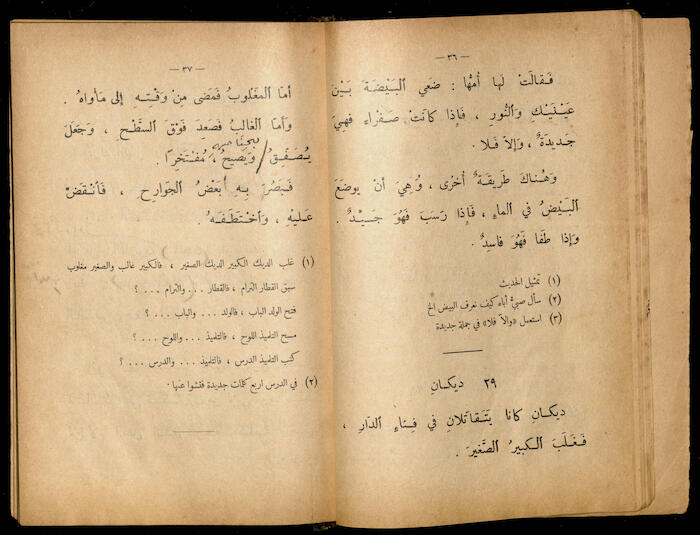 — ٣٦ —
فَقالَتْ لَها أُمُّها : ضَعي البَيْضَةَ بَيْنَ
عَيْنَيْكِ وَالنُّورِ ، فَإِذا كانَتْ صَفْراءَ فَهِيَ
جَديدَةٌ ، وَإِلاّ فَلا .
وَهُناكَ طَريقَةٌ أُخْرَى ، وَهِيَ أَنْ يوضَعَ
البَيْضُ في الماءِ ، فَإِذا رَسَبَ فَهُوَ جَيِّدٌ .
وَإِذا طَفا فَهُوَ فاسِدٌ .
(١) تمثيل الحديث
(٢) سأل صبيٌّ أباه كيف نعرف البيض الخ
(٣) استعمل «والاّ فلا» في جملة جديدة
٢٩ ديكانِ
ديكانِ كانا يَتَقاتَلانِ في فِناءِ الدّارِ ،
فَغَلَبَ الكَبيرُ الصَّغيرَ .
— ٣٧ —
أَمّا المَغْلوبُ فَمَضَى مِنْ وَقْتِهِ إِلى مَأْواهُ .
وَأَمّا الغالِبُ فَصَعِدَ فَوْقَ السَّطْحِ ، وَجَعَلَ
بجناحيه
يُصَفِّقُ وَيَصيحُ ، مُفْتَخِرًا .
فَبَصُرَ بِهِ بَعْضُ الجَوارِحِ ، فَٱنْقَضَّ
عَلَيْهِ ، وَٱخْتَطَفَهُ .
(١) غلب الديك الكبير الديك الصغير ، فالكبير غالب والصغير مغلوب
سبق القطار الترام ، فالقطار ... والترام ... ؟
فتح الولد الباب ، فالولد ... والباب ... ؟
مسح التلميذ اللوح ، فالتلميذ ... واللوح ... ؟
كتب التلميذ الدرس ، فالتلميذ ... والدرس ... ؟
(٢) في الدرس اربع كلمات جديدة ففتشوا عنها .